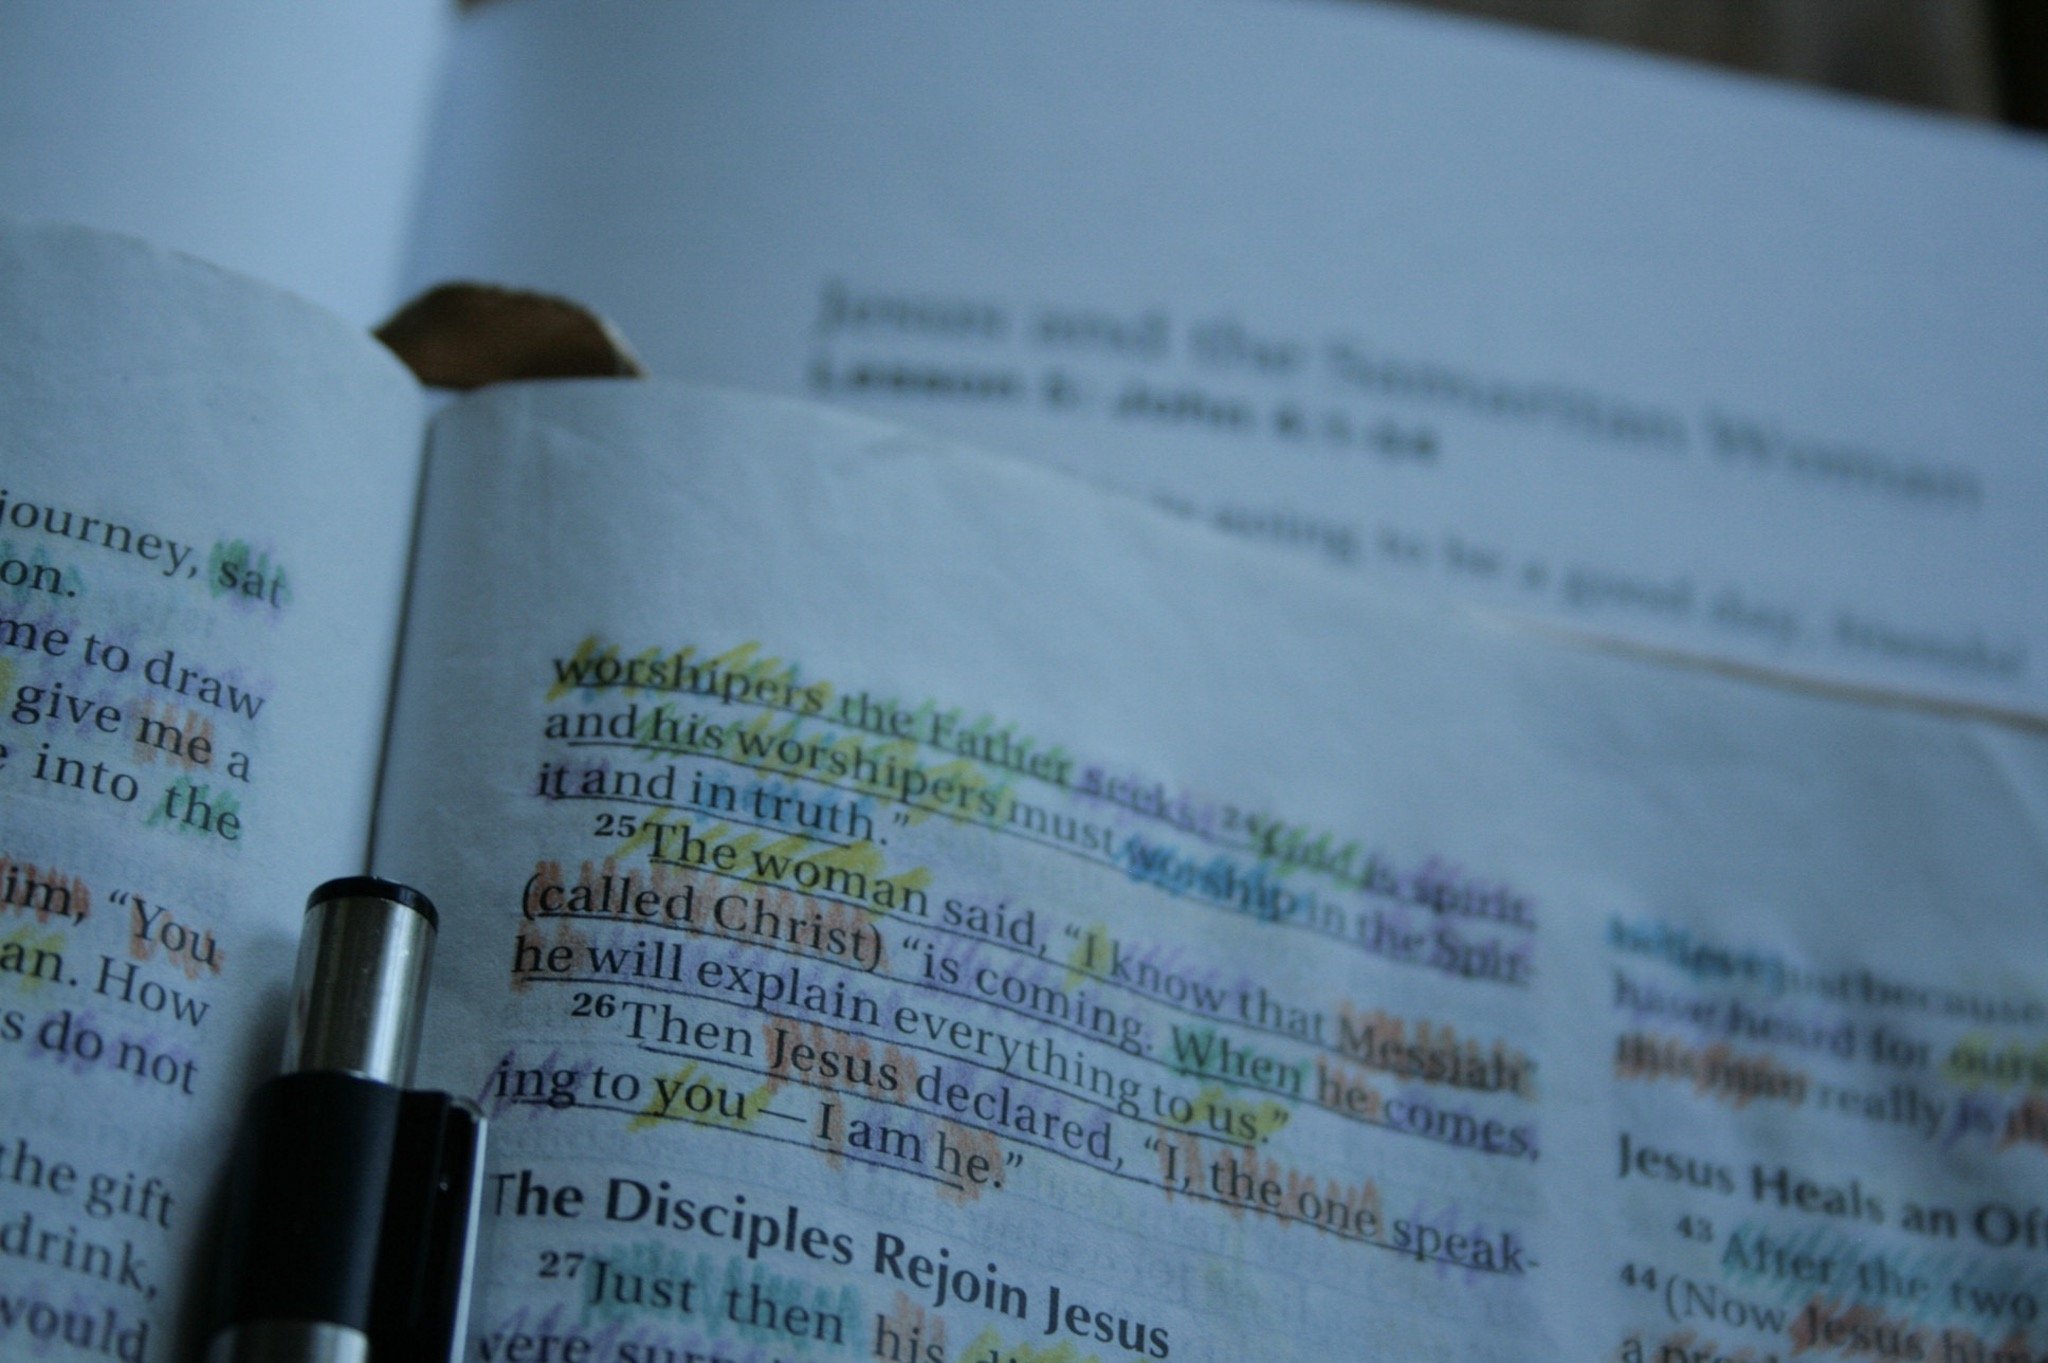 Jesus and the Samaritan Woman
Lesson John
going to be a good day, friends!
journey, sat
on.
me to draw
give me a
e into the
im, “You
an. How
s do not
the gift
drink,
would
worshipers the Father seeks. 24 God is spirit,
and his worshipers must worship in the Spir-
it and in truth.”
25 The woman said, “I know that Messiah”
(called Christ) “is coming. When he comes,
he will explain everything to us.”
26 Then Jesus declared, “I, the one speak-
ing to you—I am he.”
The Disciples Rejoin Jesus
27 Just then his di
were surpri
believe just because
have heard for ours
this man really is th
Jesus Heals an Off
43 After the two
44 (Now Jesus him
a pro